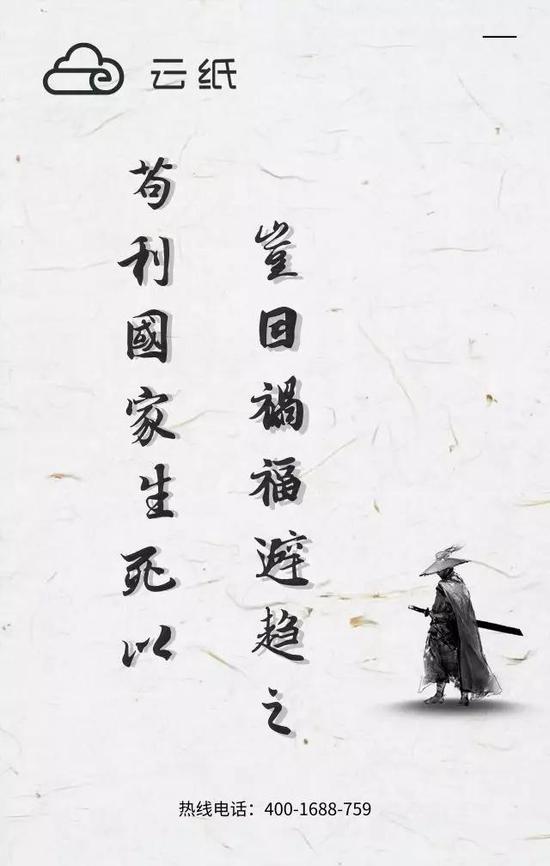 云纸
苟利國家生死以
豈因禍福避趋之
热线电话：400-1688-759